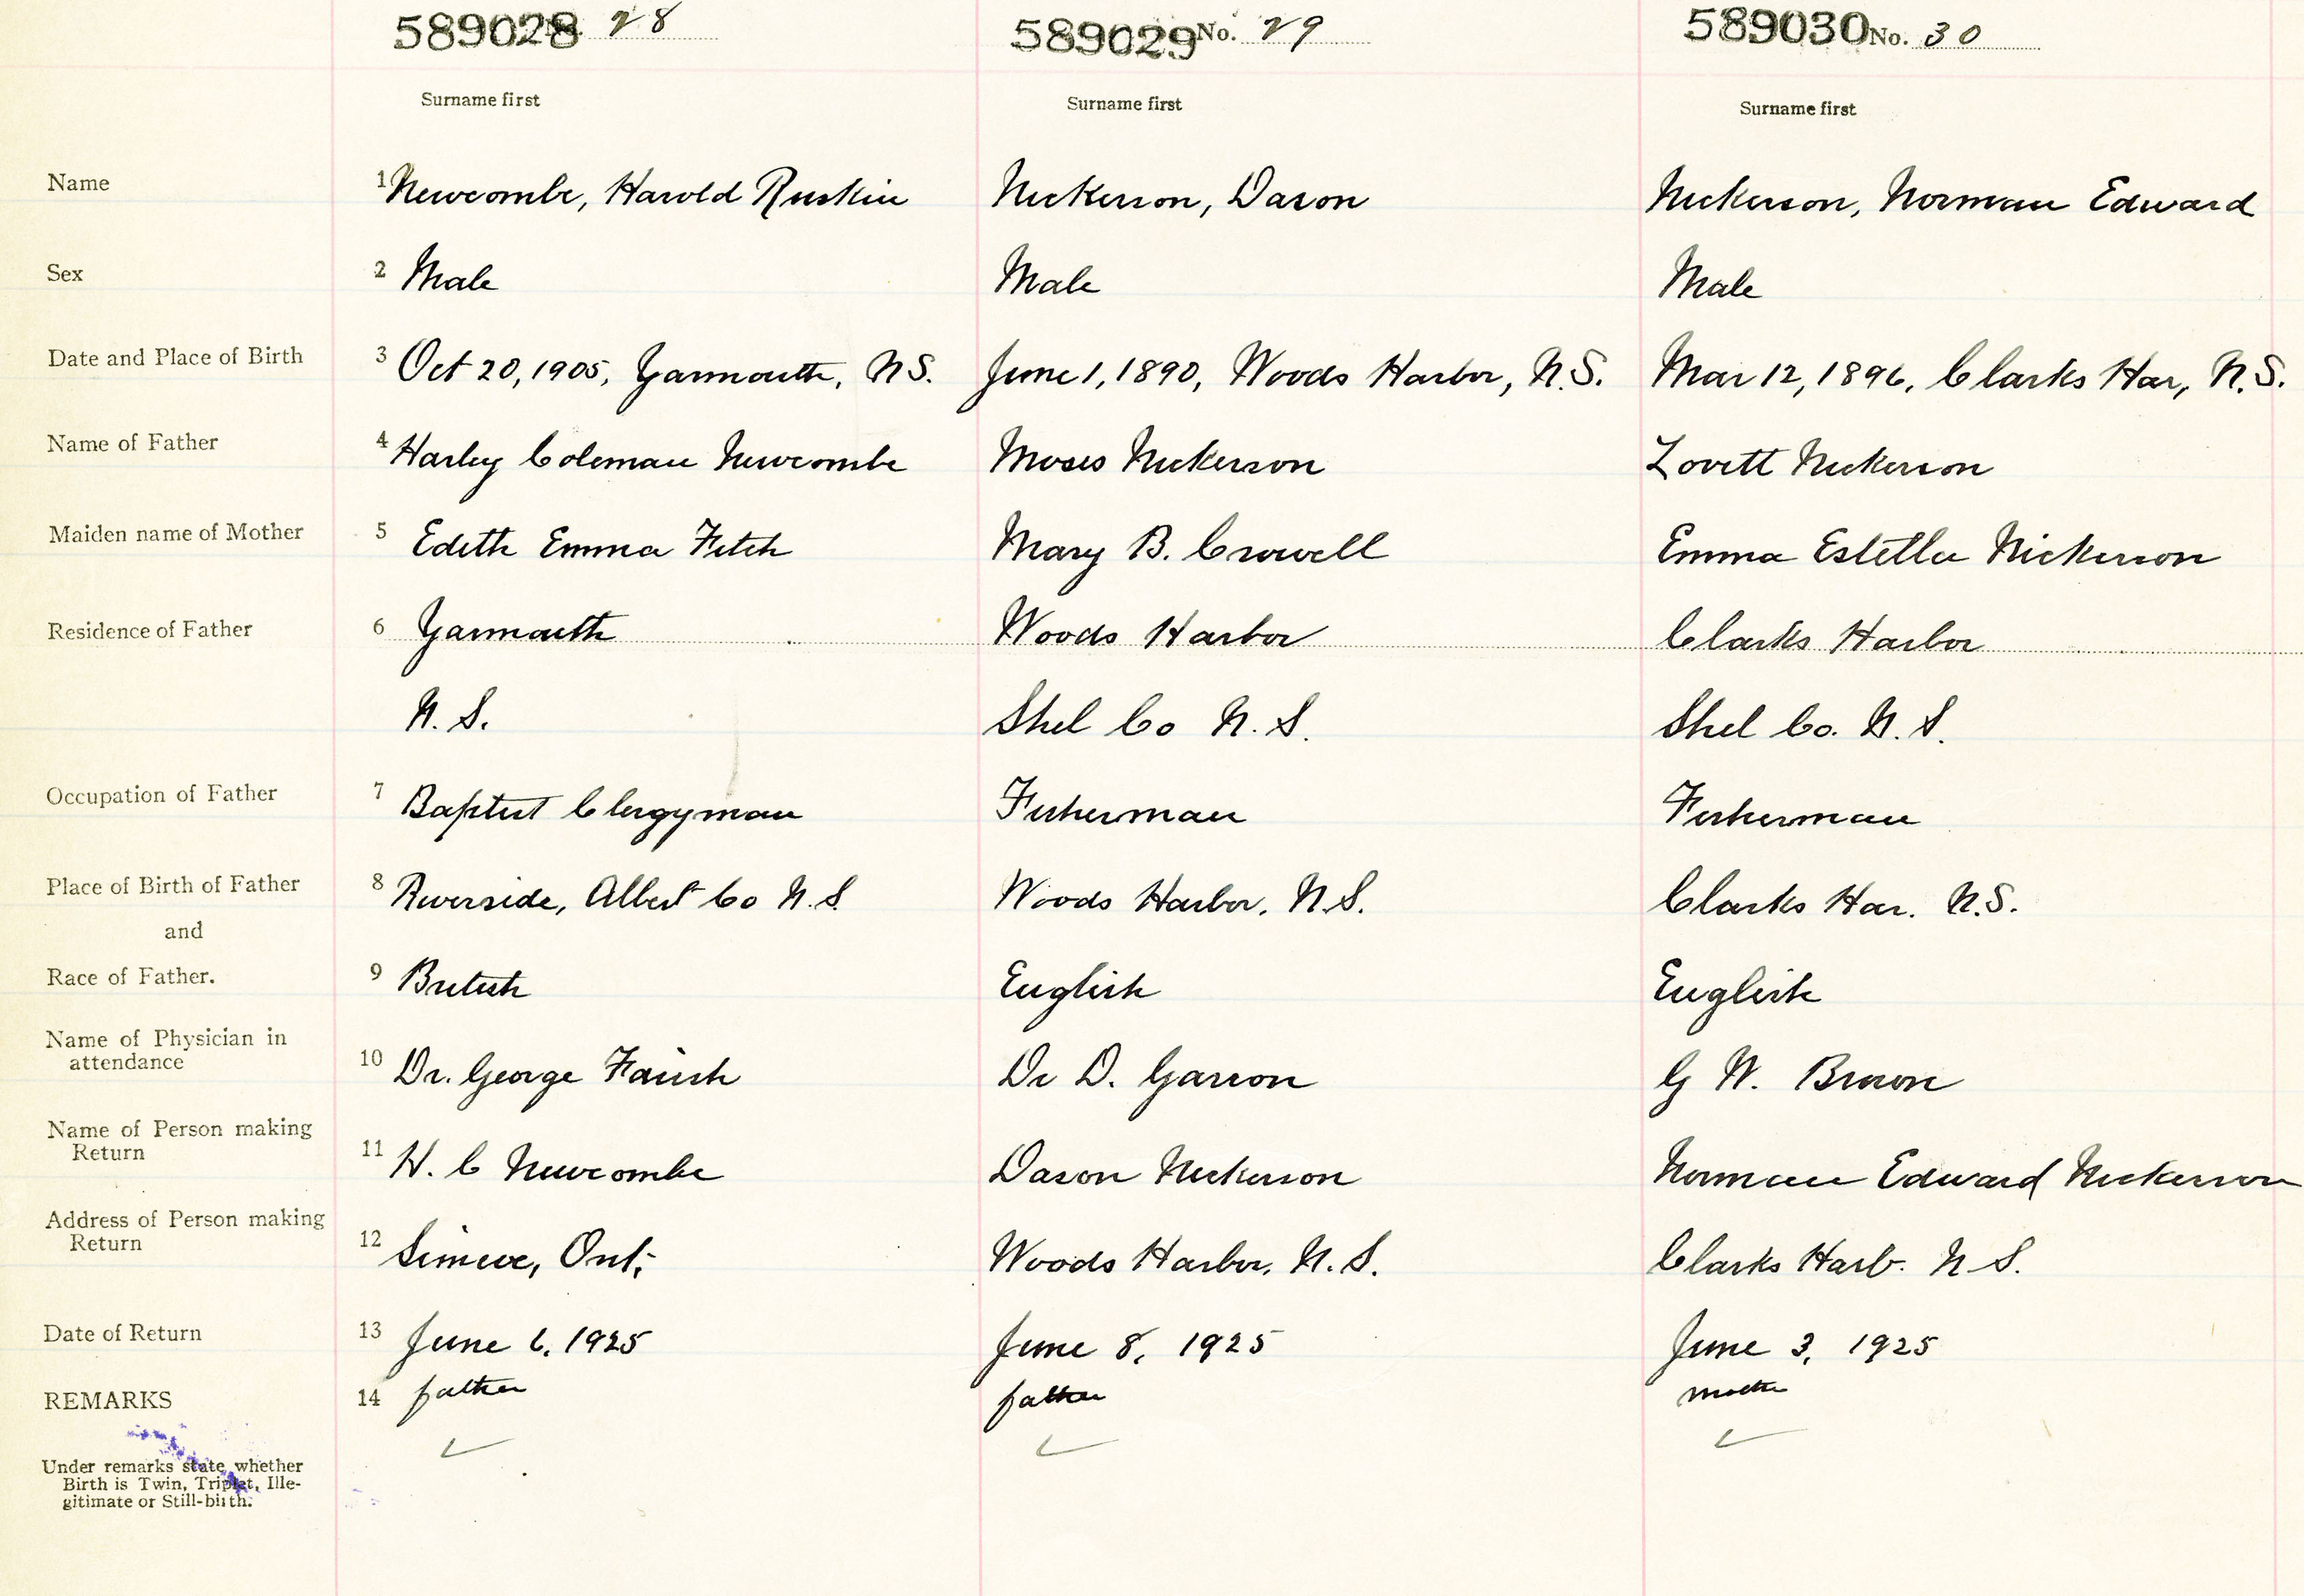 589028 No. 28 589029 No. 29 589030 No. 30
Surname first Surname first Surname first
Name 1 Newcombe, Harold Ruskin Nickerson, Dason Nickerson, Norman Edward
Sex 2 Male Male Male
Date and Place of Birth 3 Oct 20, 1905, Yarmouth, N.S. June 1, 1890, Woods Harbor, N.S. Mar 12, 1896, Clarks Har, N.S.
Name of Father 4 Harley Coleman Newcombe Moses Nickerson Lovett Nickerson
Maiden name of Mother 5 Edith Emma Fitch Mary B. Crowell Emma Estella Nickerson
Residence of Father 6 Yarmouth Woods Harbor Clarks Harbor
N. S. Shel Co N. S. Shel Co. N. S.
Occupation of Father 7 Baptist Clergyman Fisherman Fisherman
Place of Birth of Father 8 Riverside, Albert Co N. S. Woods Harbor, N.S. Clarks Har. N.S.
and
Race of Father. 9 British English English
Name of Physician in
attendance 10 Dr. George Farish Dr D. Garron G W. Brown
Name of Person making
Return 11 H. C Newcombe Dason Nickerson Norman Edward Nickerson
Address of Person making
Return 12 Simcoe, Ont. Woods Harbor, N. S. Clarks Harb. N S.
Date of Return 13 June 6, 1925 June 8, 1925 June 3, 1925
REMARKS 14 father father mother
Under remarks state whether
Birth is Twin, Triplet, Ille-
gitimate or Still-birth.